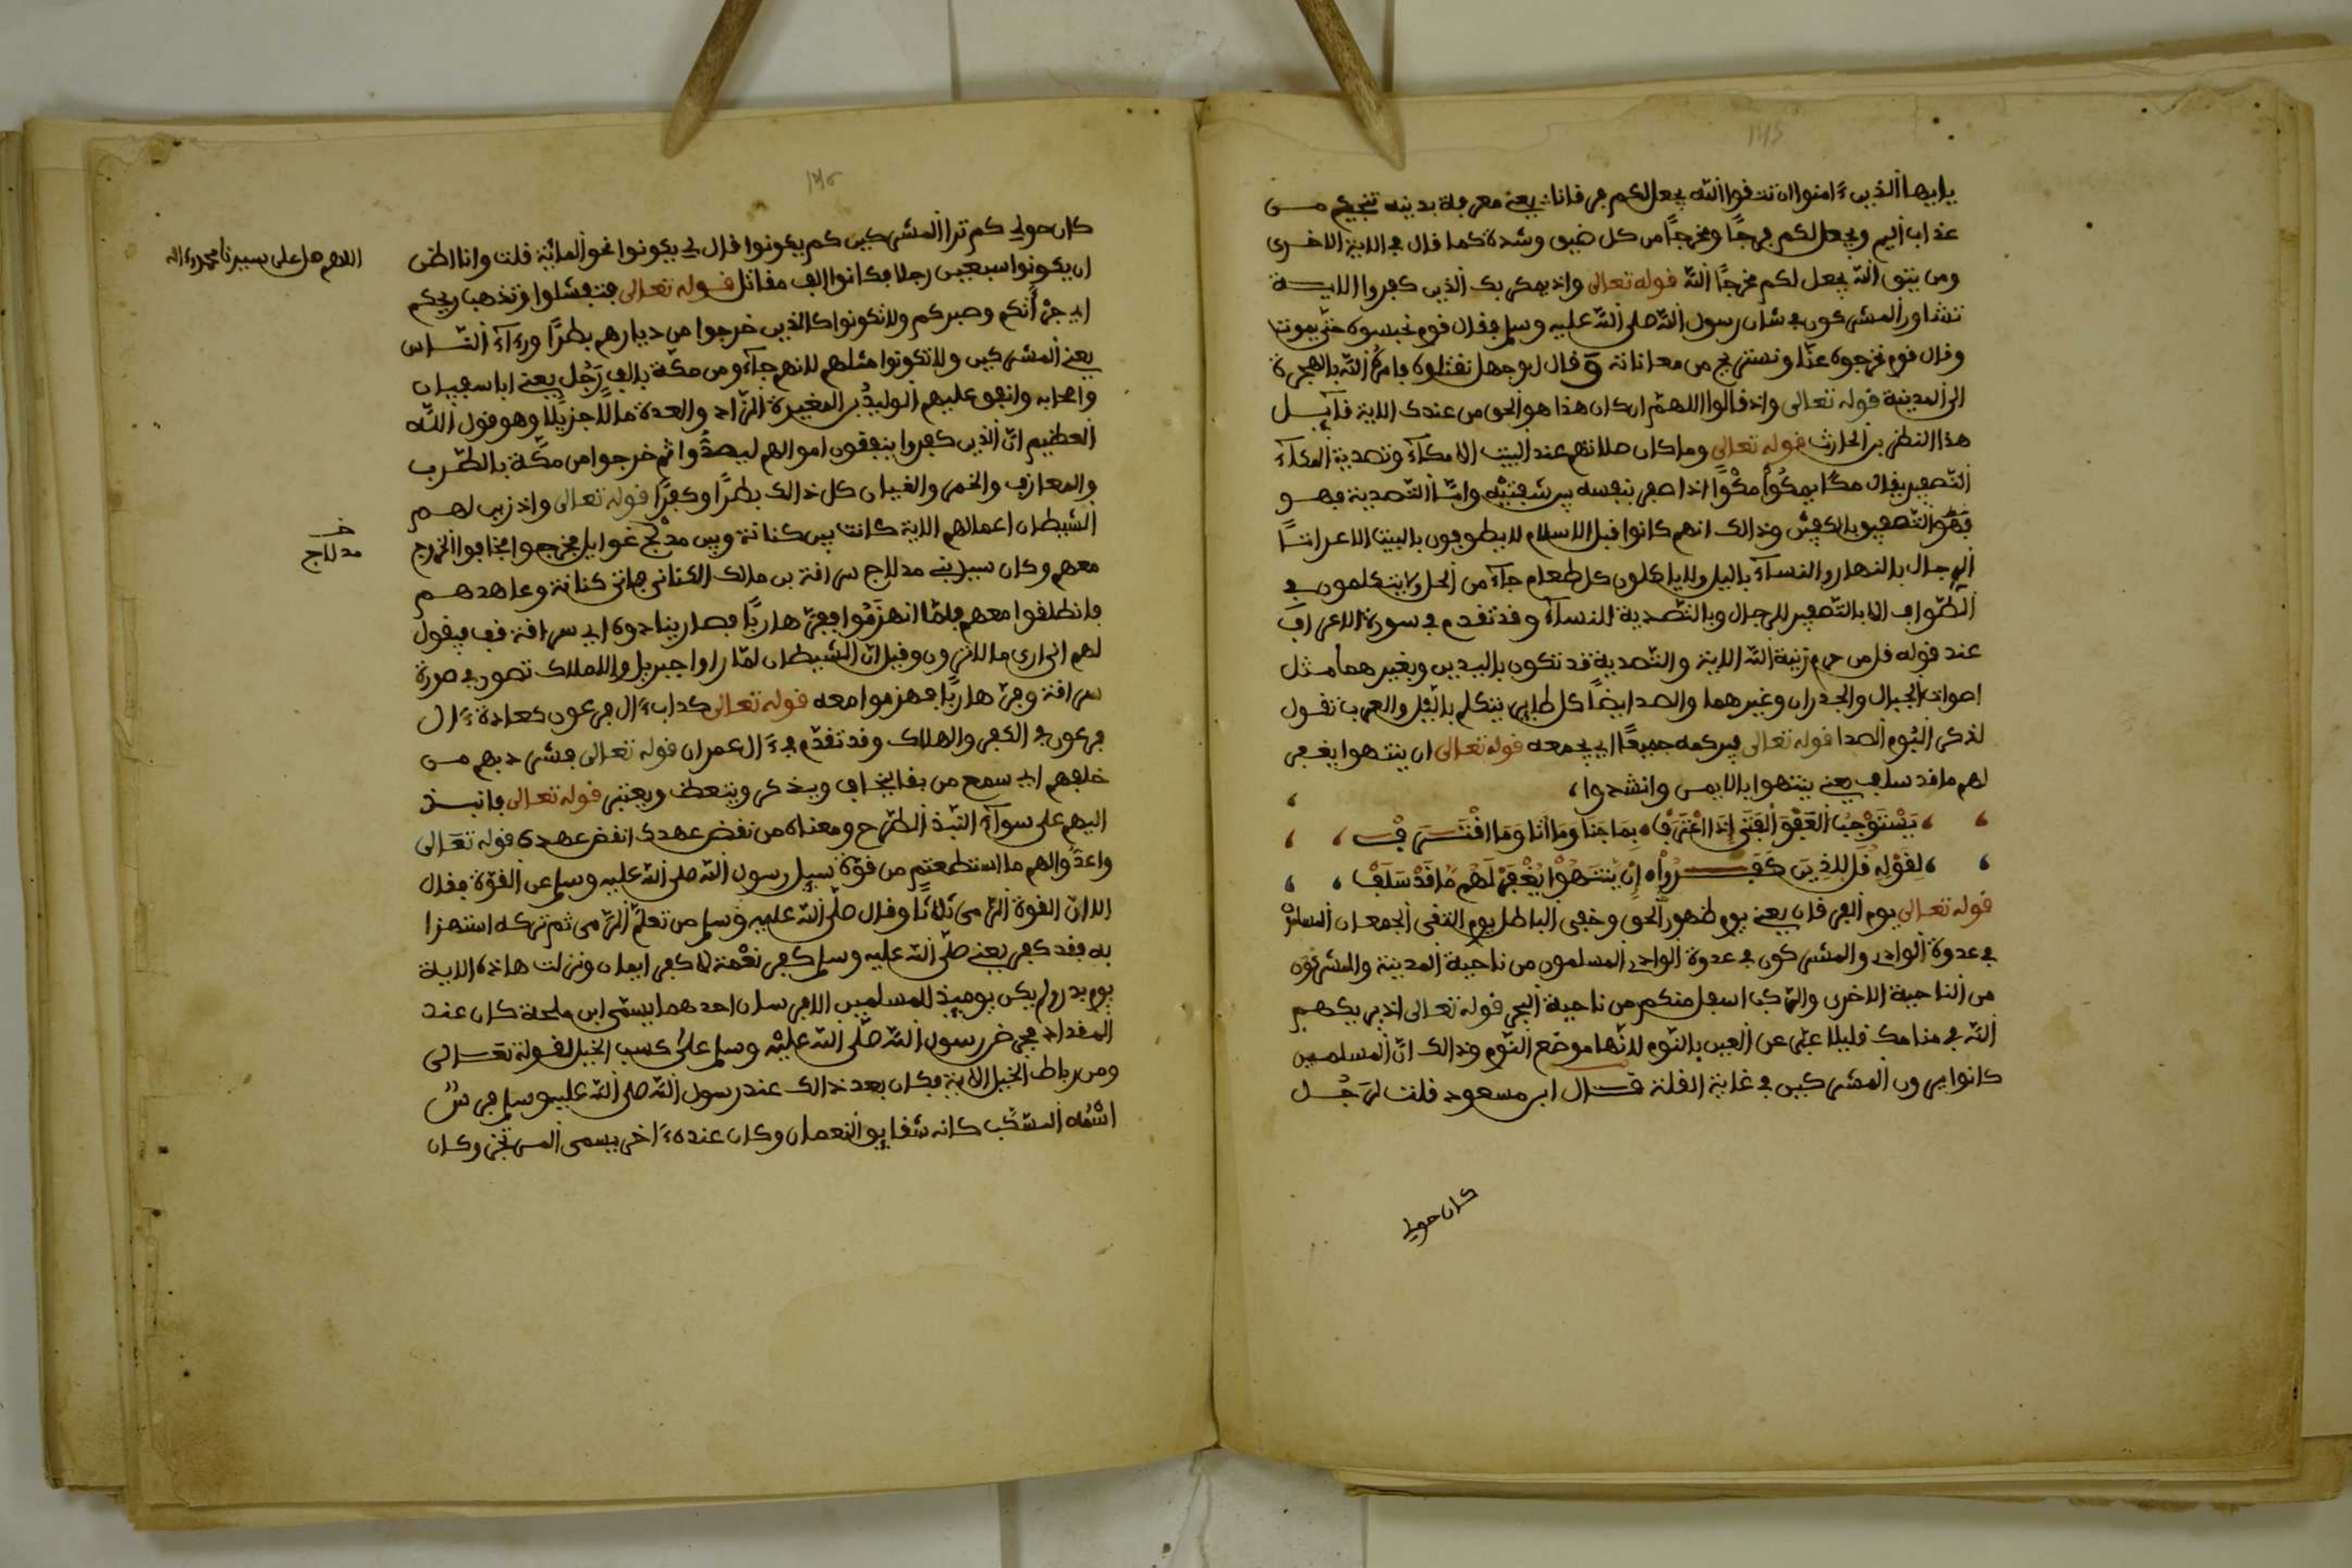 يايها الذين ءامنوا ان تتقوا الله يجعل لكم فرقانا يعني معرفة بدينه تنجيكم من
عذاب اليم ويجعل لكم فرجًا ومخرجًا من كل ضيق وشدة كما قال في الاية الاخرى
ومن يتق الله يجعل لكم مخرجًا الله قوله تعالى واذ يمكر بك الذين كفروا الاية
تشاور المشركون في شان رسول الله صلى الله عليه وسلم فقال قوم نحبسوه حتى يموت
وقال قوم نخرجوه عنا ونستريح من معاناته وقال ابو جهل نقتلوه فامره الله بالهجرة
الى المدينة قوله تعالى واذ قالوا اللهم ان كان هذا هو الحق من عندك الاية قايل
هذا النظر بن الحارث قوله تعالى وما كان صلاتهم عند البيت الا مكآء وتصدية المكآء
التصفير يقال مكا يمكوا مكوًا اذا صفر بنفسه بين شفتيه وامّا التصدية فهو
فهو التصفيق بالكفين وذالك انهم كانوا قبل الاسلام لا يطوفون بالبيت الا عراتًا
الرجال بالنهار والنسآء باليل ولا ياكلون كل طعام جآء من الحل ولا يتكلمون في
الطواف الا بالتصفير للرجال وبالتصدية للنسآء وقد تقدم في سورة الاعراف
عند قوله قل من حرم زينة الله الاية والتصدية قد تكون باليدين وبغيرهما مثل
اصوات الجبال والجدران وغيرهما والصدا ايضًا كل طاير يتكلم باليل والعرب تقول
لذكر البوم الصدا قوله تعالى فيركمه جميعًا اي يجمعه قوله تعالى ان ينتهوا يغفر
لهم ما قد سلف يعني ينتهوا بالايمن وانشدوا
يَسْتَوْجِبُ العَفْوَ الفَتَى إِذَا اعْتَرَفْ بِمَا جَنَا وَمَا أَتَا وَمَا اقْتَرَفْ
لِقَوْلِهِ قُل لِلذِينَ كَفَرُوْا إِنْ يَنْتَهُوْا يُغْفَرْ لَهُم مَا قَدْ سَلَفْ
قوله تعالى يوم الفرقان يعني يوم ظهور الحق وخفى الباطل يوم التقى الجمعان المسلمون
في عدوة الوادي والمشركون في عدوة الوادي المسلمون من ناحية المدينة والمشركون
من الناحية الاخرى والركب اسفل منكم من ناحية البحر قوله تعالى اذ يريكهم
الله في منامك قليلا عبّر عن العين بالنوم لانّها موضع النوم وذالك انّ المسلمين
كانوا يرون المشركين في غاية القلة قال ابن مسعود قلت لرجل
كان حولي
كان حولي كم ترا المشركين كم يكونوا قال لي يكونوا نحو الماية قلت وانا اظن
ان يكونوا سبعين رجلا فكانوا الف مقاتل قوله تعالى فتفشلوا وتذهب ريحكم
اي جرأتكم وصبركم ولا تكونوا كالذين خرجوا من ديارهم بطرًا ورءآء الناس
يعني المشركين ولا تكونوا مثلهم لانهم جآءو من مكة بالف رجل يعني ابا سفيان
واصحابه وانفق عليهم الوليد بن المغيرة الزاد والعدة مالًا جزيلًا وهو قول الله
العظيم انّ الذين كفروا ينفقون اموالهم ليصدّوا ثم خرجوا من مكّة بالطرب
والمعازف والخمر والقيان كل ذالك بطرًا وكفرًا قوله تعالى واذ زين لهم
الشيطان اعمالهم الاية كانت بين كنانة وبين مدلج غوايل فخرجوا فخافوا الخروج
معهم وكان سيد بني مدلاج سراقة بن مالك الكناني فاتى كنانة وعاهدهم
فانطلقوا معهم فلمّا انهزموا ففرّ هاربًا فصار ينادوه اي سراقة قف فيقول
لهم اني ارى ما لا ترون وقيل انّ الشيطان لمّا راوا جبريل والاملاك تصور في صورة
سراقة وفرّ هاربًا فهزموا معه قوله تعالى كداب ءال فرعون كعادة ءال
فرعون في الكفر والهلاك وقد تقدّم في ءال عمران قوله تعالى فشرد بهم من
خلفهم اي سمع من بقا يخاف ويذكر ويتعظ ويعتبر قوله تعالى فانبذ
اليهم على سوآء النبذ الطرح ومعناه من نقض عهدك انقض عهده قوله تعالى
واعدّوا لهم ما استطعتم من قوّة سيل رسول الله صلى الله عليه وسلم عن القوّة فقال
الا انّ القوة الرّمى ثلاثًا وقال صلّى الله عليه وسلم من تعلّم الرّمى ثم تركه استهزا
به فقد كفر يعني صلّى الله عليه وسلم كفر نعْمة لا كفر ايمان ونزلت هاذه الاية
يوم بدر ولم يكن يوميذ للمسلمين الا فرسان احدهما يسمّى ابن ملحة كان عند
المقداد فحرض رسول الله صلّى الله عليْه وسلم على كسب الخيل لقوله تعالى
ومن رباط الخيل الاية فكان بعد ذالك عند رسول الله صلى الله عليه وسلم فرسٌ
اسْمُه السكب كانه شقايق النعمان وكان عنده ءاخر يسمى المرتجز وكان
اللهم صل على سيدنا محمد وءاله
خ
مدلاج